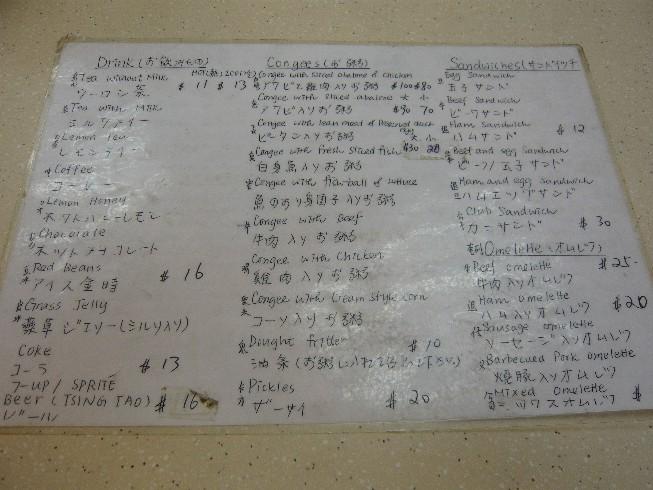 Drink (お飲みもの)
HOT(熱) ICE(冷)
Tea without Milk $11 $13
ウーロン茶
Tea with Milk
ミルクティー
Lemon Tea
レモンティー
Coffee
コーヒー
Lemon Honey
ホットハニーレモン
Chocolate
ホットチョコレート
Red Beans $16
アイス金時
Grass Jelly
薬草ジエリー(ミルク入り)
Coke
コーラ $13
7-UP / SPRITE
Beer (TSING TAO) $16
ビール
Congees (お粥)
Congee with sliced abalone & chicken
アワビと雞肉入りお粥 $100 $80
Congee with sliced abalone 大 小
アワビ入りお粥 $90 70
Congee with lean meat & Preserved duck egg 大 小
ピータン入りお粥
Congee with Fresh Sliced Fish $30 20
白身魚入りお粥
Congee with fish-ball & lettuce
魚のすり身団子入りお粥
Congee with Beef
牛肉入りお粥
Congee with Chicken
雞肉入りお粥
Congee with Cream style corn
コーン入りお粥
Dought fritter $10
油条
Pickles
ザーサイ $20
Sandwiches (サンドイッチ)
Egg Sandwich
玉子サンド
Beef Sandwich
ビーフサンド
Ham Sandwich $12
ハムサンド
Beef and egg Sandwich
ビーフ/玉子サンド
Ham and egg Sandwich
ハムエッグサンド
Club Sandwich
カニサンド $30
Omelette (オムレツ)
Beef omelette $25
牛肉入りオムレツ
Ham omelette $20
ハム入りオムレツ
Sausage omelette
ソーセージ入りオムレツ
Barbecued Pork omelette
焼豚入りオムレツ
Mixed Omelette $
ミックスオムレツ